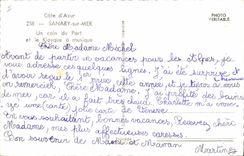 Côte d'Azur
258 - SANARY-sur-MER
Un coin du Port
et le Kiosque à musique
PHOTO VÉRITABLE
Chère Madame Michel
Avant de partir en vacances pour les Alpes, je
vous adresse ces quelques lignes. J'ai été surprise
d'avoir reçu le 1er prix cette année et je tiens à vous
en remercier, Chère Madame. J'ai profité des bains
de mer car il a fait très chaud. Charlotte m'a envoyé
une (carte) jolie carte de Genève.
En vous souhaitant, bonnes vacances, Recevez, chère
Madame, mes plus affectueuses caresses.
Bon souvenir de Mamie et Maman
Martine